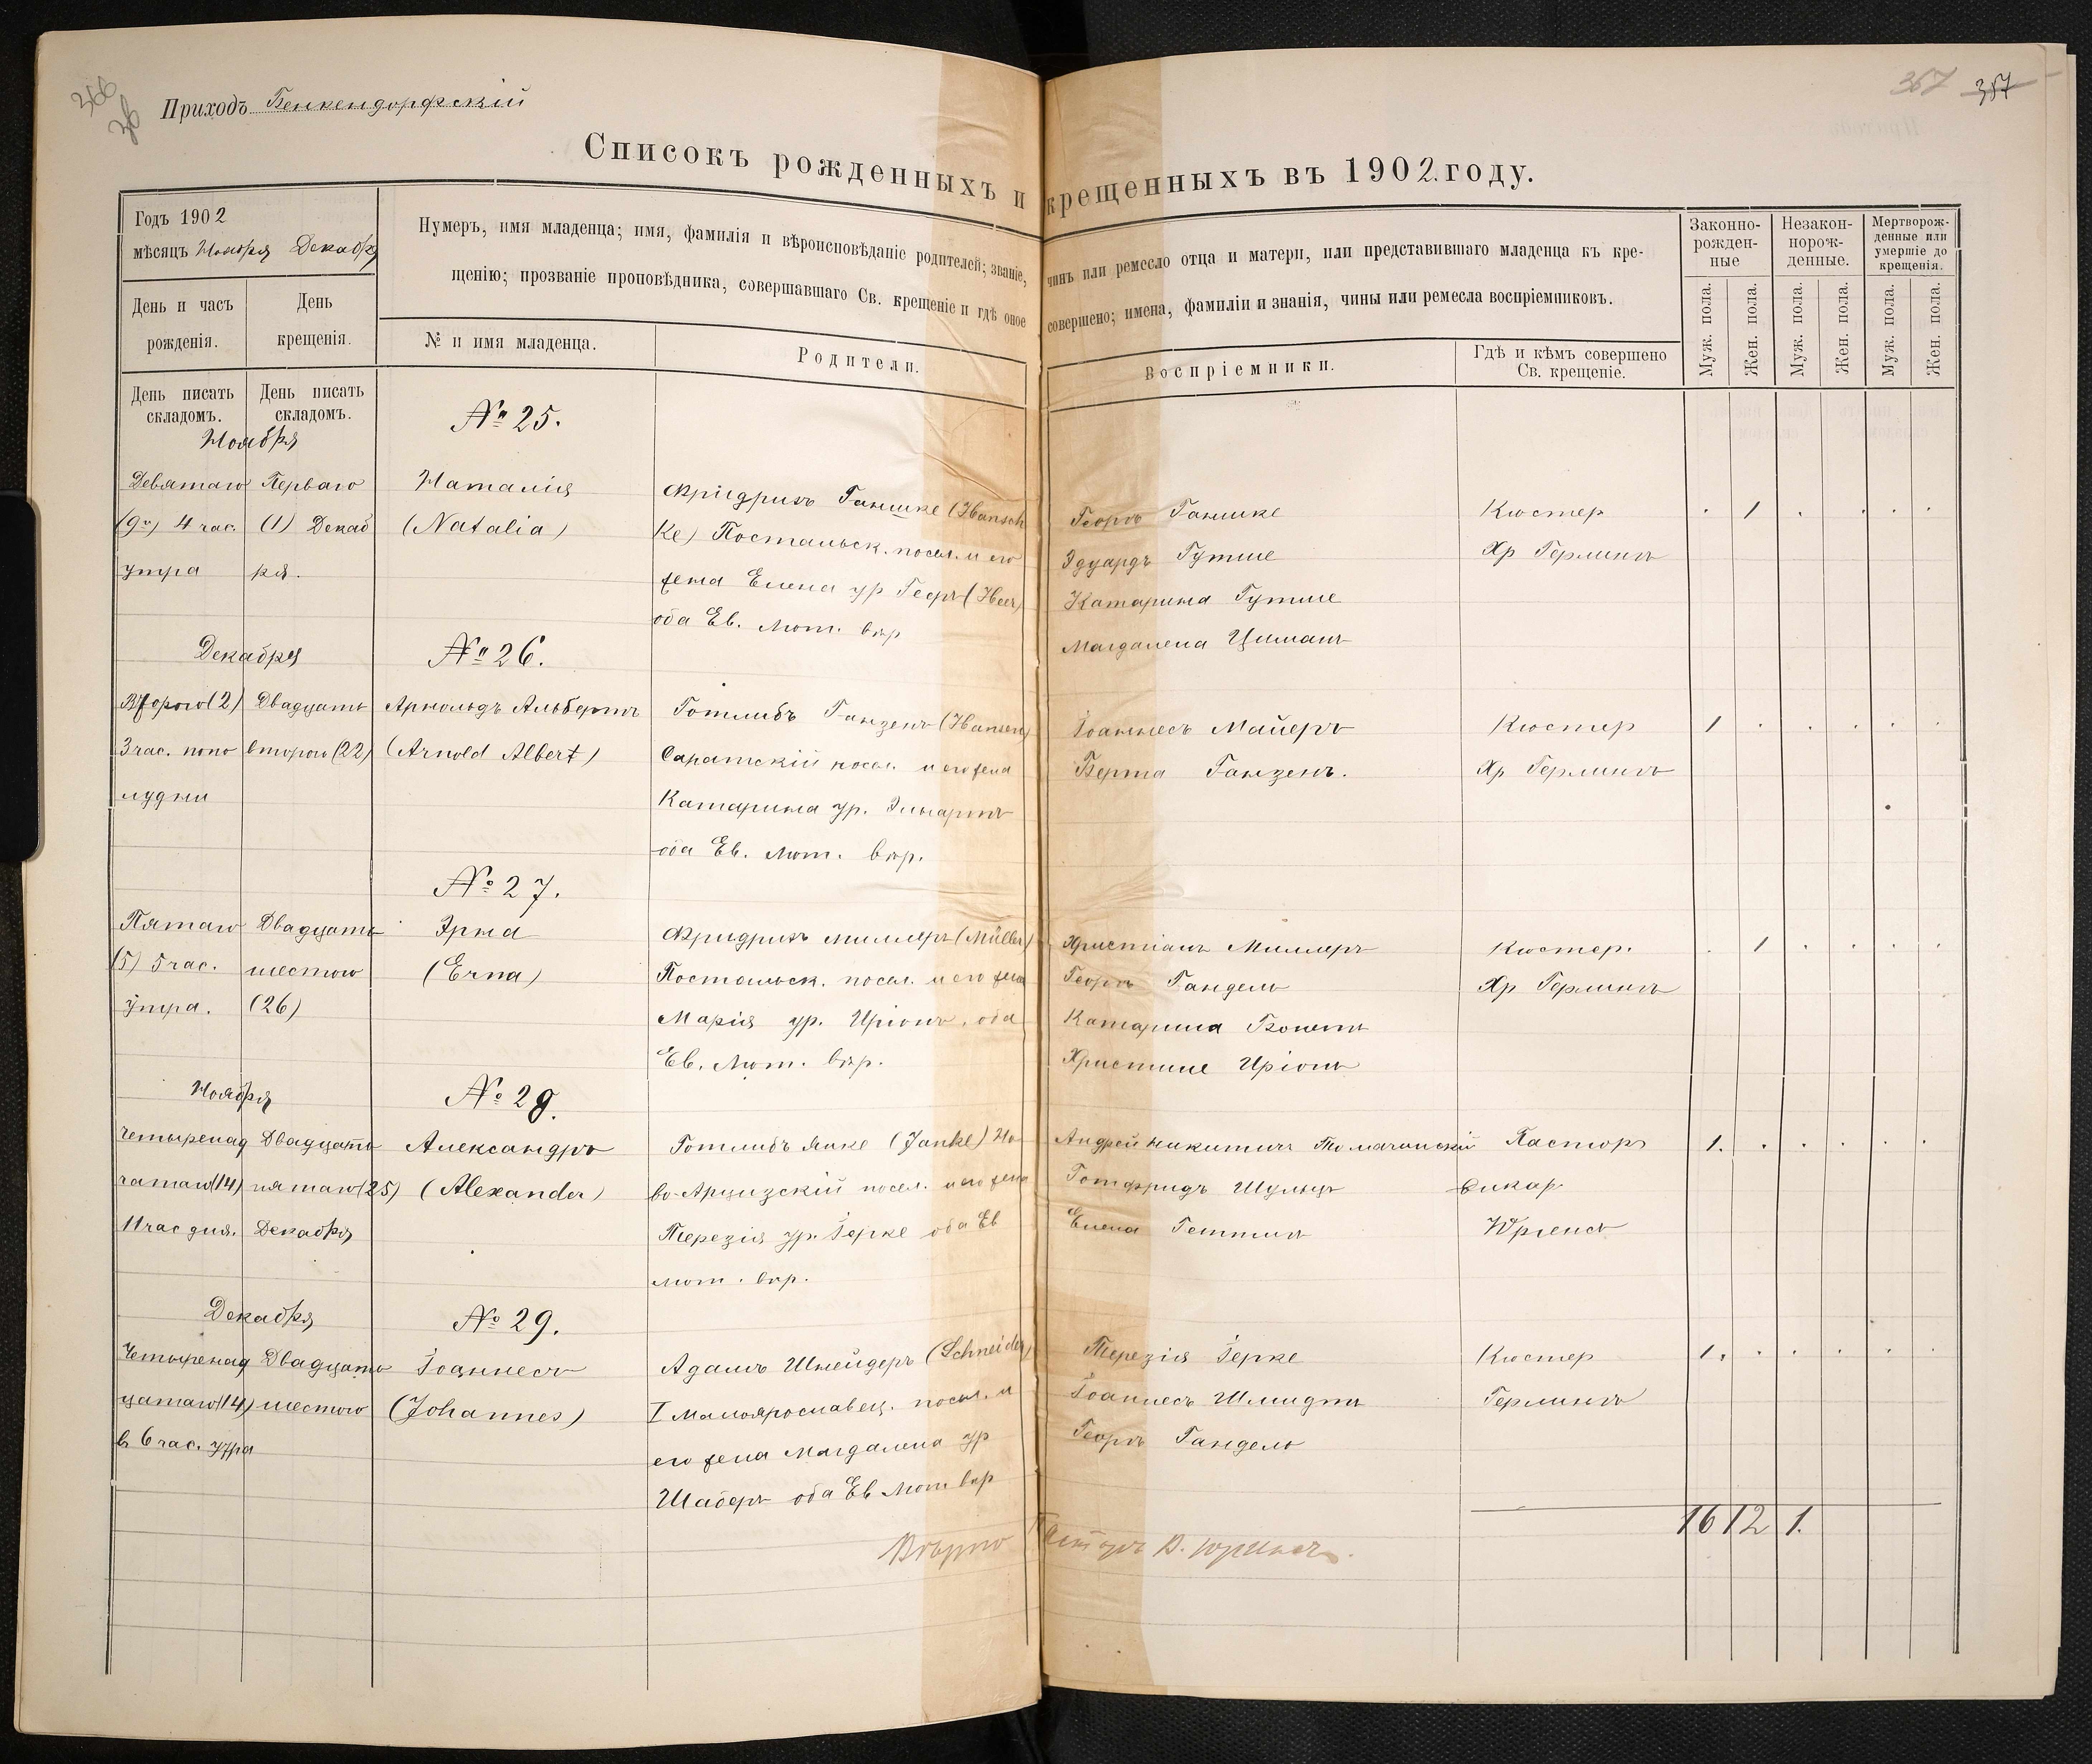 366
36
Приходъ Бенкендорфскій
367 357
Списокъ рожденныхъ и крещенныхъ въ 1902. году.
Годъ 1902
мѣсяцъ Ноября Декабря
День и часъ рожденія.
День крещенія.
Нумеръ, имя младенца; имя, фамилія и вѣроисповѣданіе родителей; званіе, чинъ или ремесло отца и матери, или представившаго младенца къ кре-
щенію; прозваніе проповѣдника, совершавшаго Св. крещеніе и гдѣ оное совершено; имена, фамиліи и знанія, чины или ремесла воспріемниковъ.
№ и имя младенца.
Родители.
Воспріемники.
Гдѣ и кѣмъ совершено
Св. крещеніе.
Законно-
рожден-
ные
Незакон-
норож-
денные.
Мертворож-
денные или
умершіе до
крещенія.
Муж. пола. Жен. пола. Муж. пола. Жен. пола. Муж. пола. Жен. пола.
День писать
складомъ.
День писать
складомъ.
Ноября
№ 25.
Девятаго
(9го) 4 час.
утра
Перваго
(1) Декаб
ря.
Наталія
(Natalia)
Фридрихъ Ганшке (Hansch
ке) Постальск. посел. и его
жена Елена ур Гееръ (Heer)
оба Ев. Лют. вѣр
Георгъ Ганшке
Эдуардъ Гутше
Катарина Гутше
Магдалена Циманъ
Кюстер
Хр Герлингъ
. 1 . . . .
Декабря
№ 26.
Второго (2)
3 час. попо
лудни
Двадцать
второго (22)
Арнольдъ Альбертъ
(Arnold Albert)
Готлибъ Ганзенъ (Hansen)
Саратскій посел. и его жена
Катарина ур.
оба Ев. Лют. вѣр.
Іоаннесъ Майеръ
Берта Ганзенъ.
Кюстер
Хр Герлингъ
1 . . . . .
№ 27.
Пятаго
(5) 5 час.
утра.
Двадцать
шестого
(26)
Эрна
(Erna)
Фридрихъ Миллеръ (Müller)
Постальск. посел. и его жена
Марія ур. Иріонъ, оба
Ев. Лют. вѣр.
Христіанъ Миллеръ
Георгъ Гандель
Катарина Бонетъ
Христине Иріонъ
Кюстер.
Хр Герлингъ
. 1 . . . .
Ноября
№ 28.
Четыренад
цатаго (14)
11 час дня.
Двадцать
пятаго (25)
Декабря
Александръ
(Alexander)
Готлибъ Янке (Janke) Но
во-Арцизскій посел. и его жена
Терезія ур. Герке оба Ев
Лют. вѣр.
Андрей Никитичъ Томачинскій
Готфридъ Шульцъ
Елена
Пастор
Викар
Юргенсъ
1. . . . . .
Декабря
№ 29.
Четыренад
цатаго (14)
в 6 час. утра
Двадцать
шестого
Іоаннесъ
(Johannes)
Адамъ Шнейдеръ (Schneider)
I Малоярославец. посел. и
его жена Магдалена ур
Шаберъ оба Ев Лют вѣр
Терезія Герке
Іоаннесъ Шмидтъ
Георгъ Гандель
Кюстер
Герлингъ
1. . . . . .
16 12 1.
Вѣрно Пасторъ В. Юргенсъ.